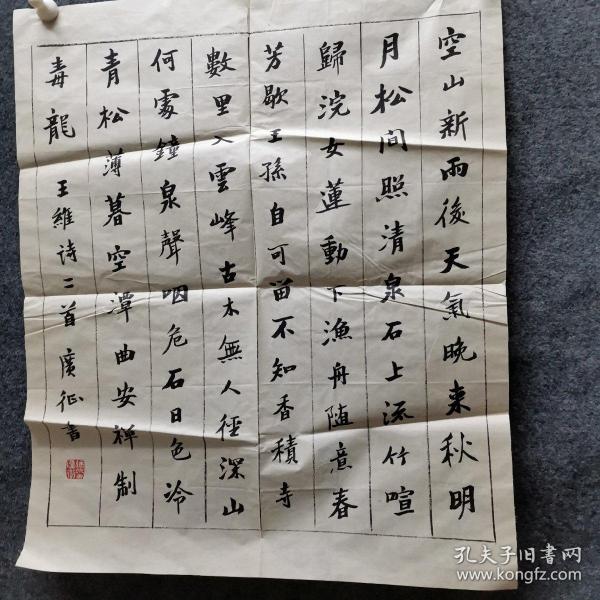 空山新雨後天氣晚来秋明
月松间照清泉石上流竹喧
歸浣女蓮動下漁舟随意春
芳歇王孫自可留不知香積寺
數里入雲峰古木無人径深山
何處鐘泉聲咽危石日色冷
青松薄暮空潭曲安禅制
毒龍
王維诗二首廣征書
孔夫子旧书网
www.kongfz.com